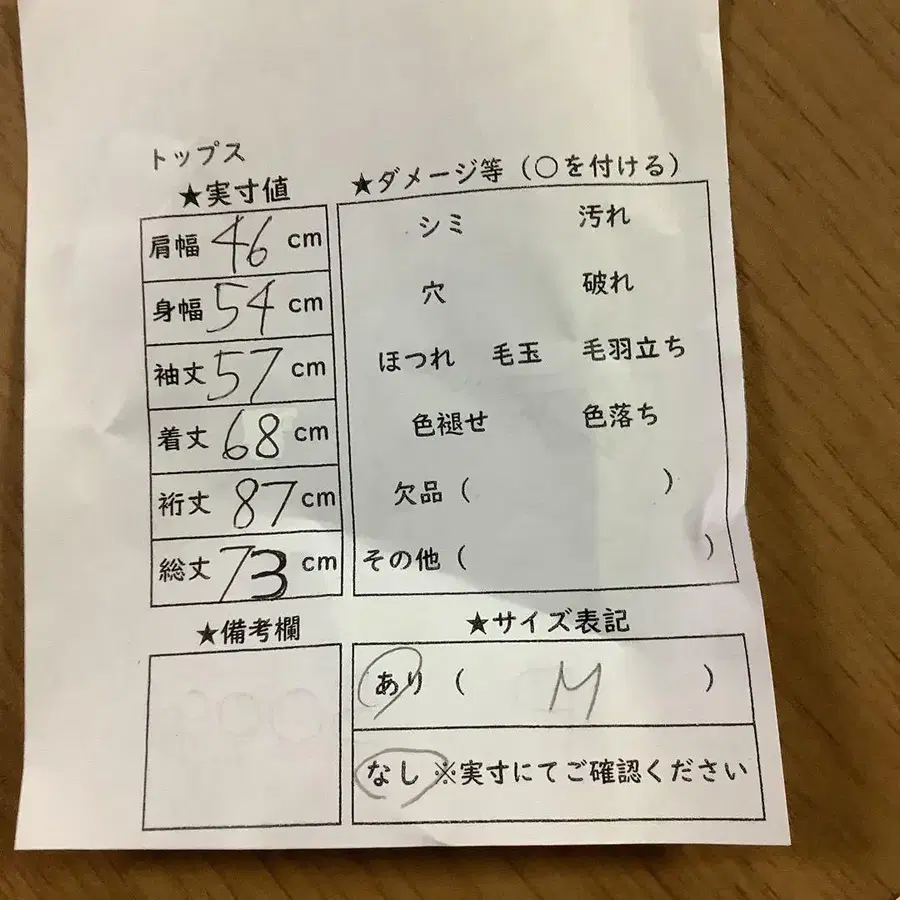 トップス
★実寸値
肩幅 46 cm
身幅 54 cm
袖丈 57 cm
着丈 68 cm
裄丈 87 cm
総丈 73 cm
★ダメージ等（○を付ける）
シミ 汚れ
穴 破れ
ほつれ 毛玉 毛羽立ち
色褪せ 色落ち
欠品（ ）
その他（ ）
★備考欄
★サイズ表記
あり（ M ）
なし ※実寸にてご確認ください